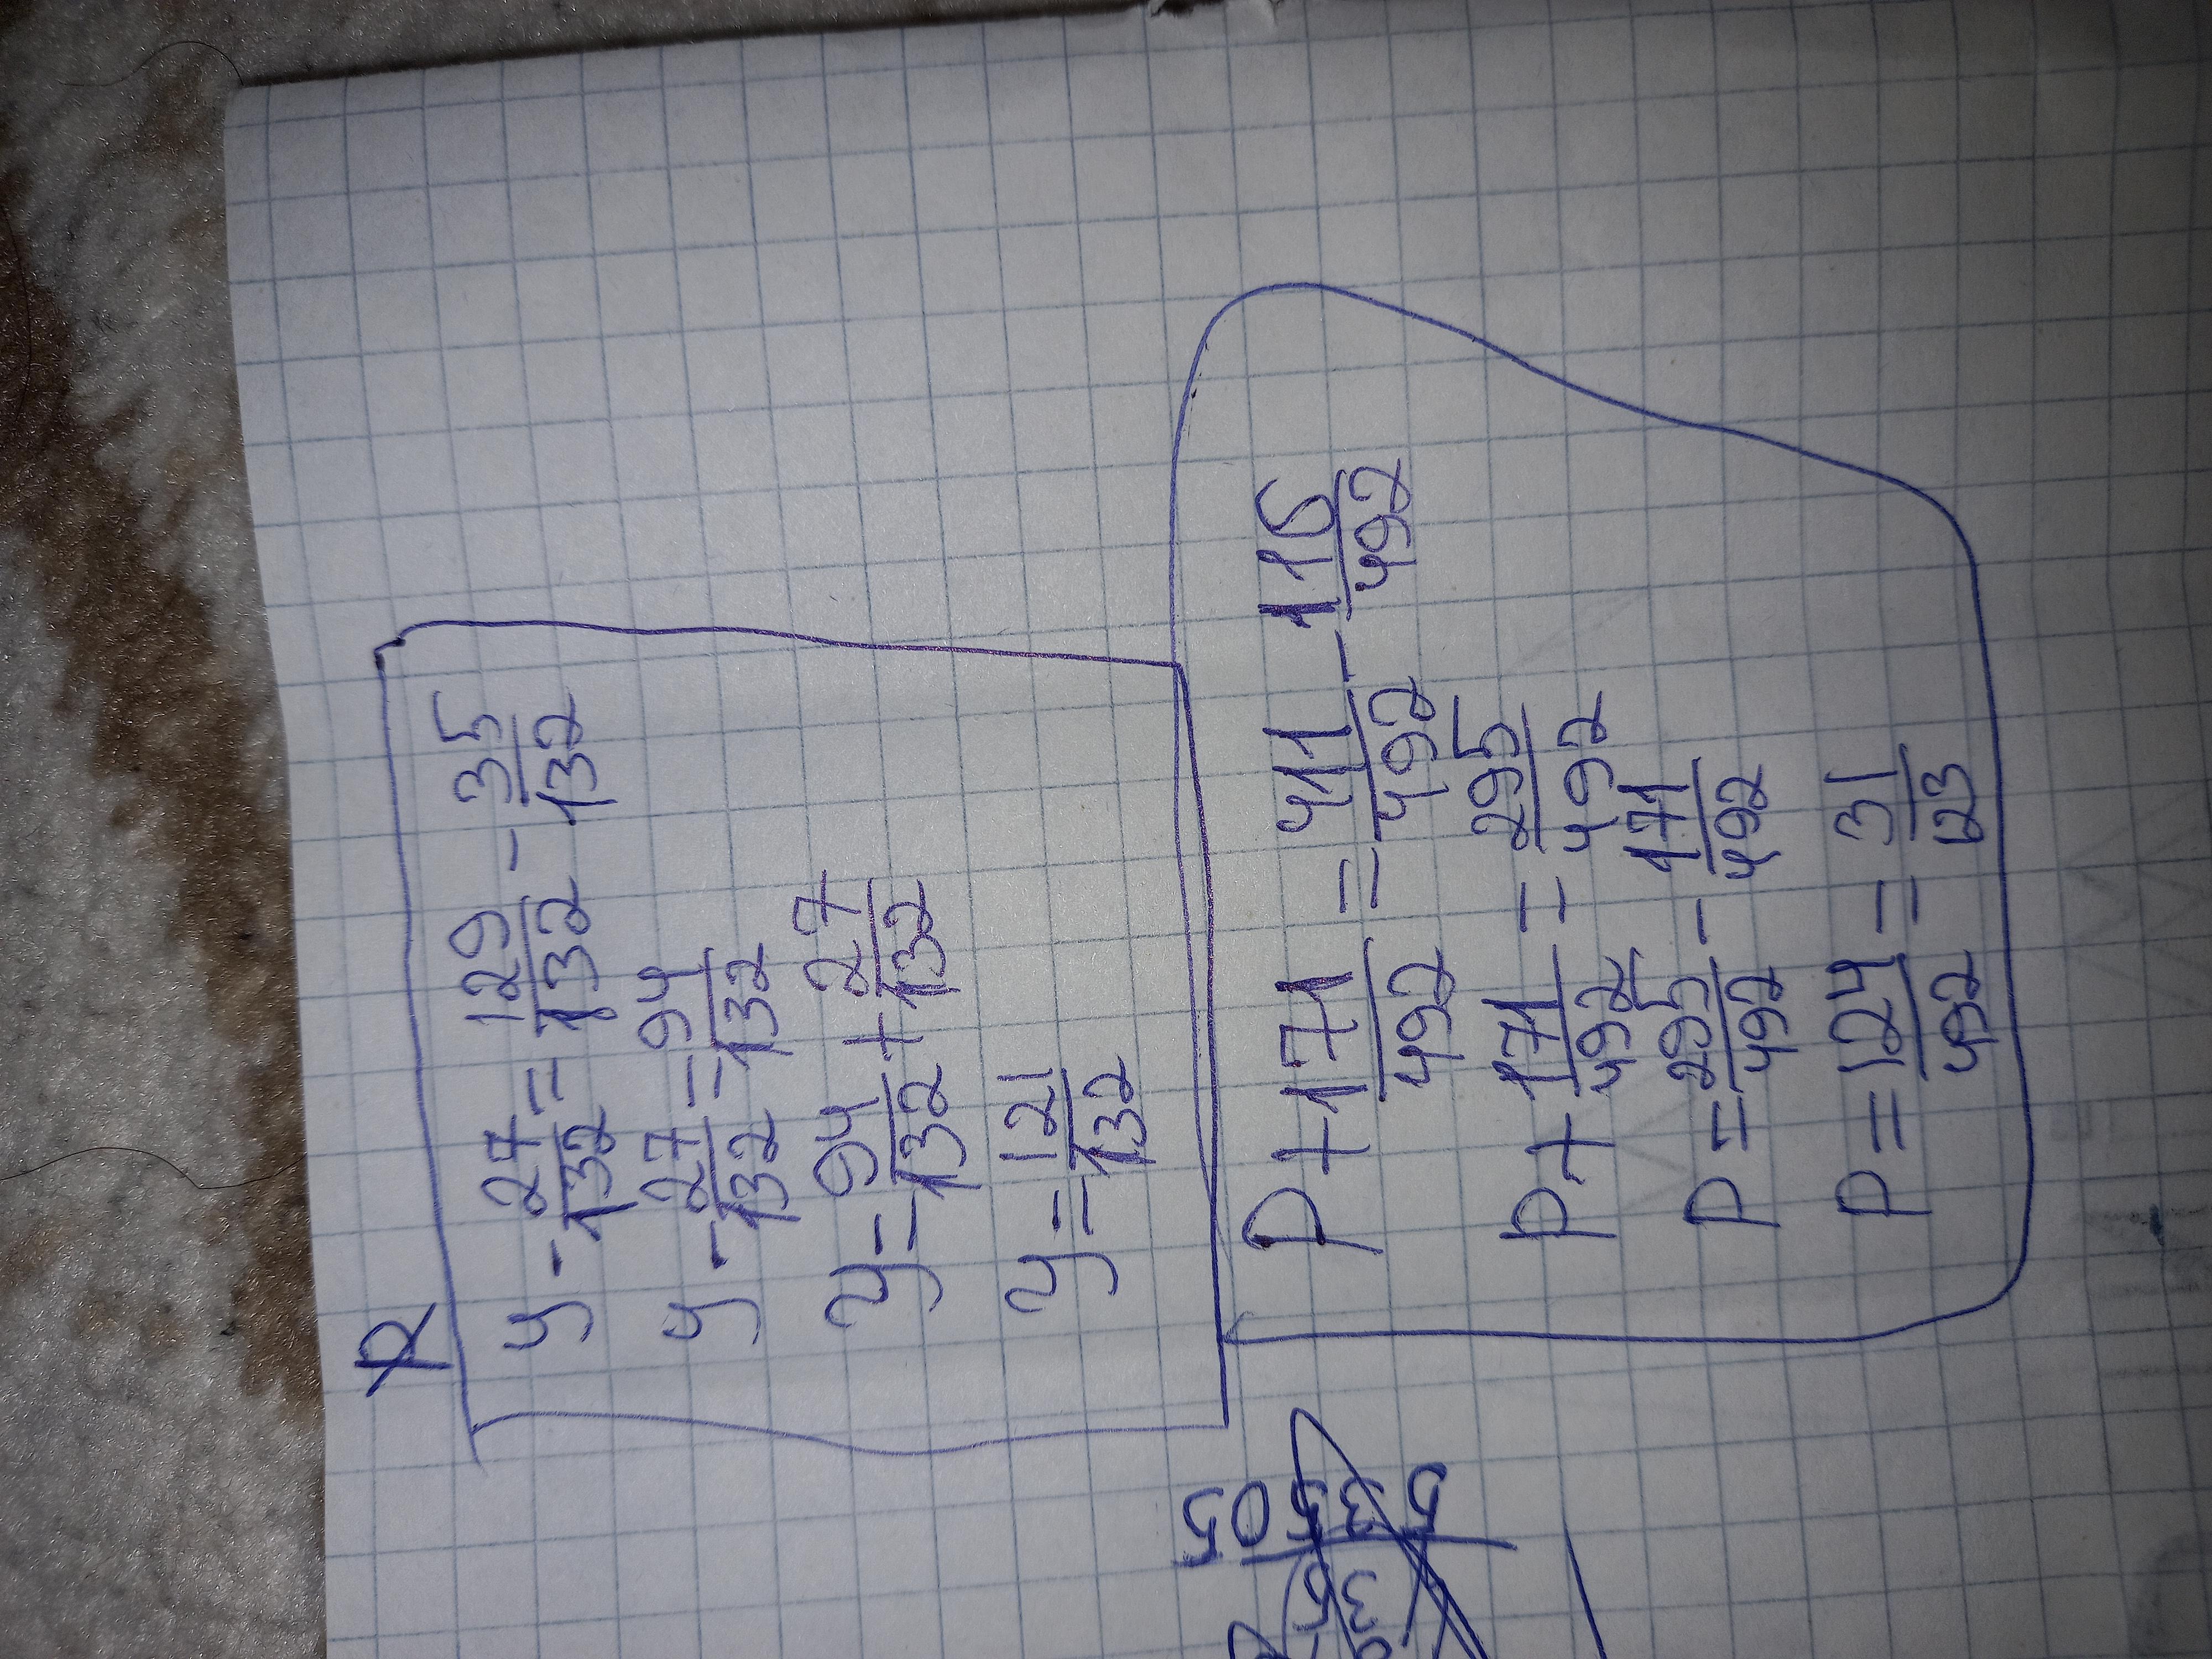 y - 27/132 = 129/132 - 35/132
y - 27/132 = 94/132
y = 94/132 + 27/132
y = 121/132
P + 171/492 = 411/492 - 116/492
P + 171/492 = 295/492
P = 295/492 - 171/492
P = 124/492 = 31/123